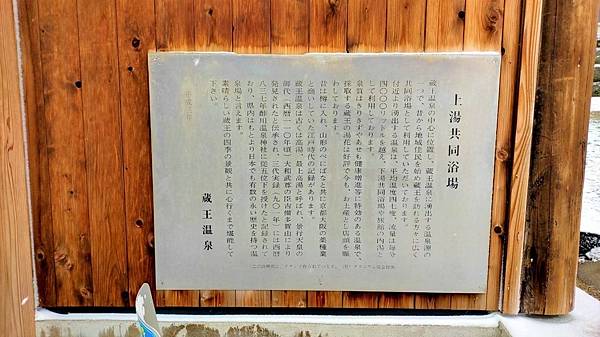 上湯共同浴場
蔵王温泉の中心に位置し、蔵王温泉に湧出する温泉源の
一つで、昔から地域住民を始め蔵王を訪れる方々に広く
共同浴場として利用していただいております。
付近より湧出する温泉は、平均温度四七度、流量は毎分
四〇〇〇リットルを越え、下湯共同浴場や旅館の内湯と
して利用しております。
泉質はきりきずやあせも健康増進等に特効のある温泉で、
採取する蔵王の湯花は好評で今も、お土産として店頭を賑
わしております。
昔は樽に入れ、山形のべにばなと共に京都大阪の薬種業
と商いしていた江戸時代の記録があります。
蔵王温泉は古くは高湯、最上高湯と呼ばれ、景行天皇の
御代(西暦一一〇年頃)大和武尊の臣吉備多賀由により
発見されたと伝承され、三代実録(九〇一年)には西暦
八三七年酢川温泉神社に従五位下を授けたと記録されて
おり、県内はもとより日本でも有数の古い歴史を持つ温
泉場と言えます。
素晴らしい蔵王の四季の景観と共に心行くまで堪能して
下さい。
平成三年
蔵王温泉